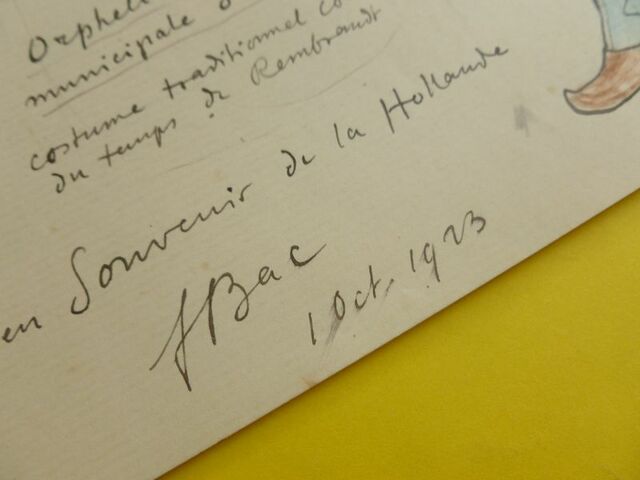 Orpheli
municipale
costume traditionnel
du temps de Rembrandt
en Souvenir de la Hollande
JBac
1 Oct. 1923